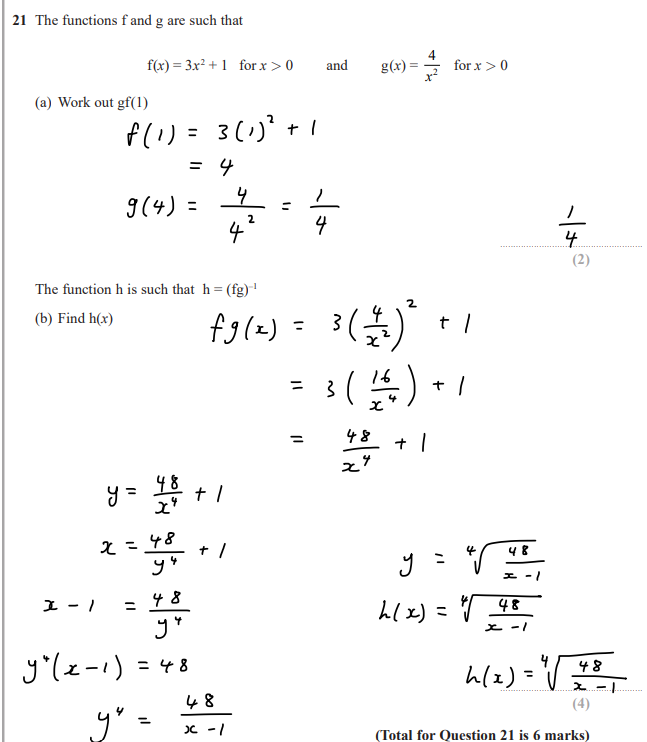 21 The functions f and g are such that
f(x) = 3x² + 1 for x > 0 and g(x) = 4/x² for x > 0
(a) Work out gf(1)
f(1) = 3(1)² + 1
= 4
g(4) = 4/4² = 1/4
1/4
(2)
The function h is such that h = (fg)⁻¹
(b) Find h(x)
fg(x) = 3(4/x²)² + 1
= 3(16/x⁴) + 1
= 48/x⁴ + 1
y = 48/x⁴ + 1
x = 48/y⁴ + 1
x - 1 = 48/y⁴
y⁴(x - 1) = 48
y⁴ = 48/(x - 1)
y = ⁴√(48/(x - 1))
h(x) = ⁴√(48/(x - 1))
h(x) = ⁴√(48/(x - 1))
(4)
(Total for Question 21 is 6 marks)